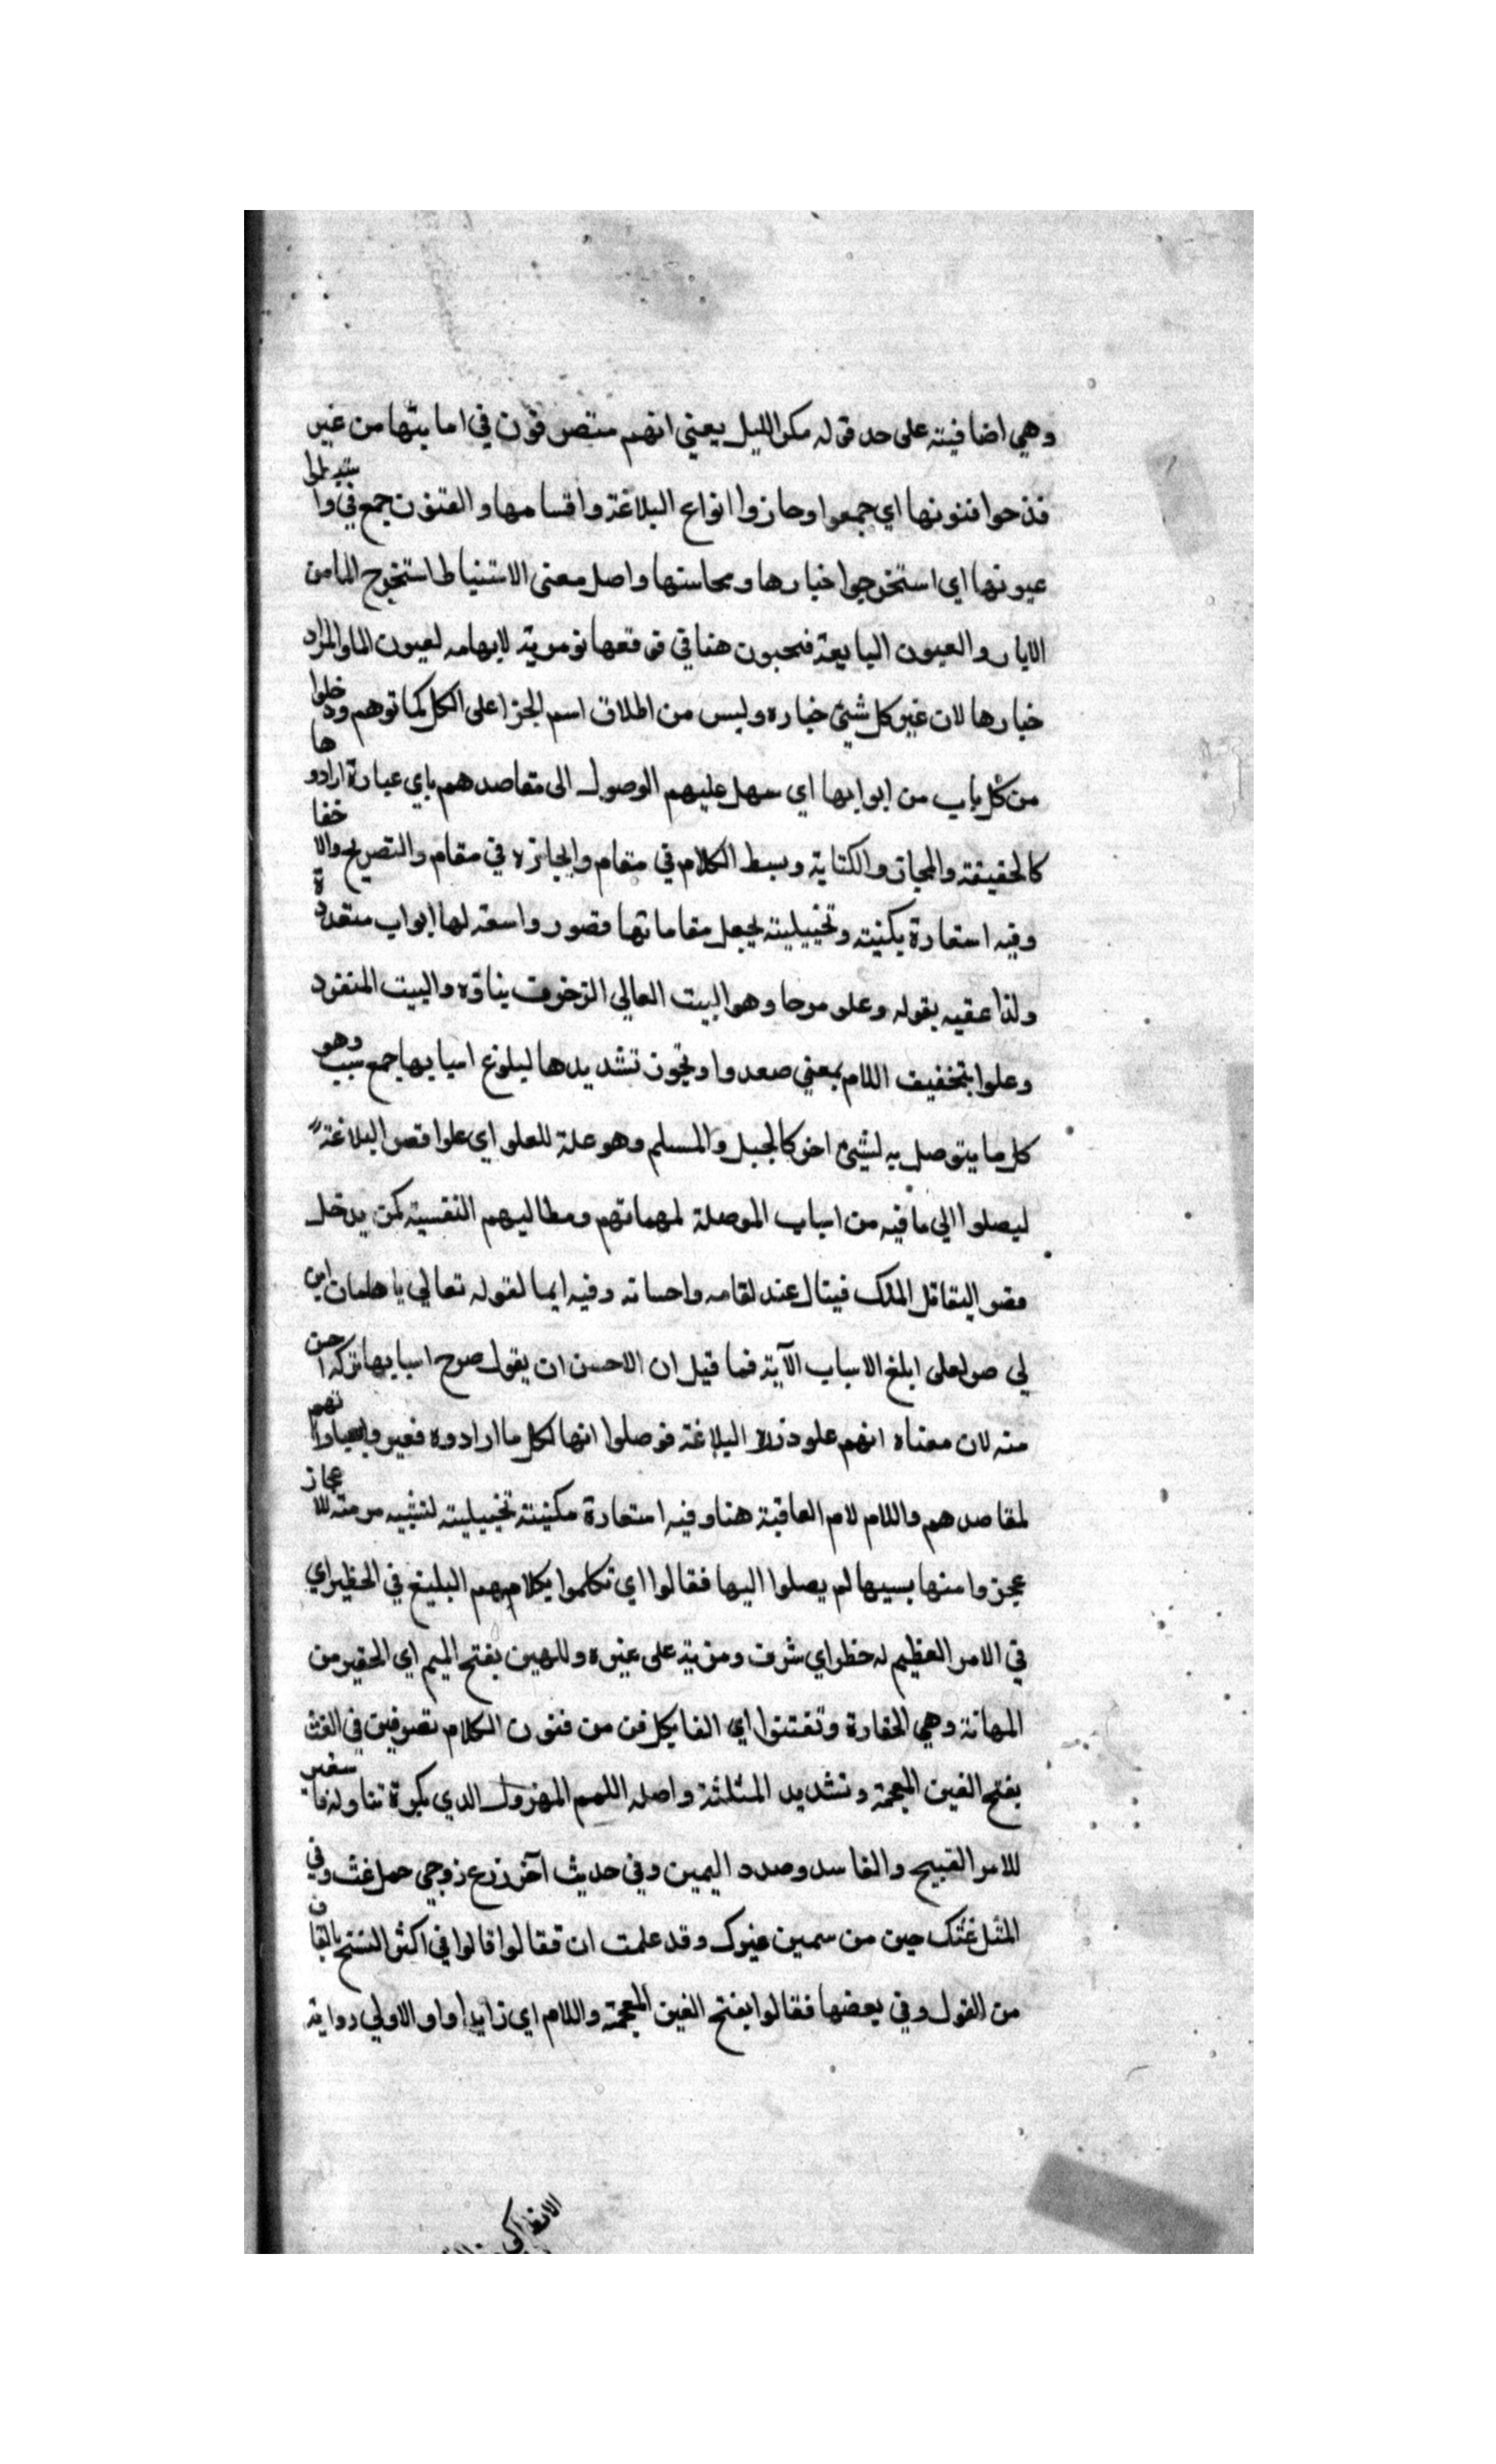 وهي اضافيته على حد قوله مكر الليل يعني انهم متصرفون في اماينها من غير
فذحوا فنونها اي جمعوا وحازوا انواع البلاغة واقسامها والفنون جمع في واستنبطوا
عيونها اي استخرجوا خيارها ومحاسنها واصل معنى الاستنباط استخرج الما من
الابار والعيون اليابعة فيجبون هنا في موقعها تورية لايهامه لعيون الما والمراد
خيارها لان غير كل شيئ خياره وليس من اطلاق اسم الجزا على الكل كما توهم ودخلوا
من كل باب من ابوابها اي سهل عليهم الوصول الى مقاصدهم باي عبارة ارادوها
كالحقيقة والمجاز والكناية وبسط الكلام في مقام وايجازه في مقام والتصريح والاخفا
وفيه استعارة مكنيته وتخييليته لجعل مقاماتها قصور واسعه لها ابواب متعددة
ولذا عقبه بقوله وعلو صرحا وهو البيت العالي الزخرف بناؤه والبيت المنفرد
وعلوا بتخفيف اللام بمعني صعدوا وتجوز تشديدها لبلوغ اسبابها جمع سبب وهو
كل ما يتوصل به لشيئ اخر كالجبل والمسلم وهو علة للعلو اي علوا قصر البلاغة
ليصلوا الى ما فيه من اسباب الموصلة لمهماتهم ومطالبهم النفسية كمن يدخل
قصر الملك فينال عند لقامه واحسانه وفيه ايما لقوله تعالي يا هامان ابن
لي صرلعلى ابلغ الاسباب الآية فما قيل ان الاحسن ان يقول صرح اسبابها تركه احسن
منه لان معناه انهم علو ذراا البلاغة فوصلوا انها لكل ما ارادوه فعبروا بعباراتهم
لمقاصدهم واللام لام العاقبة هنا وفيه استعارة مكنيته تخييليته لتشبيه مرمته للاعجاز
عجزوا منها بسيبها لم يصلوا اليها فقالوا اي تكلموا بكلامهم البليغ في الخطير اي
في الامر العظيم له خطر اي شرف ومزية على غيره وللهين بفتح الميم اي الحقير من
المهانة وهي الحقارة وتفتنوا اي الفا بكل فن من فنون الكلام تصرفين في الغث
بفتح الغين المعجمة وتشديد المثلثة واصله اللحم المهزول الدي يكرة تناوله فاستعير
للامر القبيح والفاسد وصده اليمين وفي حديث آخر زرع زوجي حمل غث وفي
المثل غثك حين من سمين غيرك وقد علمت ان فقالوا قالوا في اكثر النسخ بالقاف
من القول وفي بعضها فغالوا بفتح الغين المعجمة واللام اي زايدا واو الاولي رواية